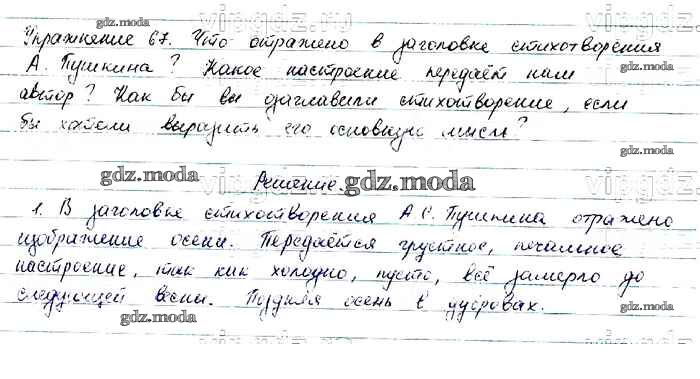 Упражнение 67. Что отражено в заголовке стихотворения
А. Пушкина? Какое настроение передаёт нам
автор? Как бы вы озаглавили стихотворение, если
бы хотели выразить его основную мысль?
Решение.
1. В заголовке стихотворения А.С. Пушкина отражено
изображение осени. Передаётся грустное, печальное
настроение, так как холодно, пусто, всё замерло до
следующей весны. Поздняя осень в
gdz.moda
gdz.moda
gdz.moda
gdz.moda
gdz.moda
gdz.moda
gdz.moda
gdz.moda